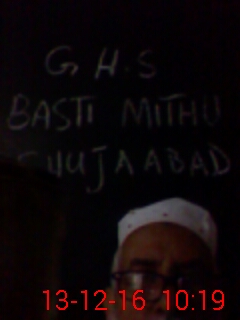 G H.S
BASTI MITHU
SHUJAABAD
13-12-16 10:19